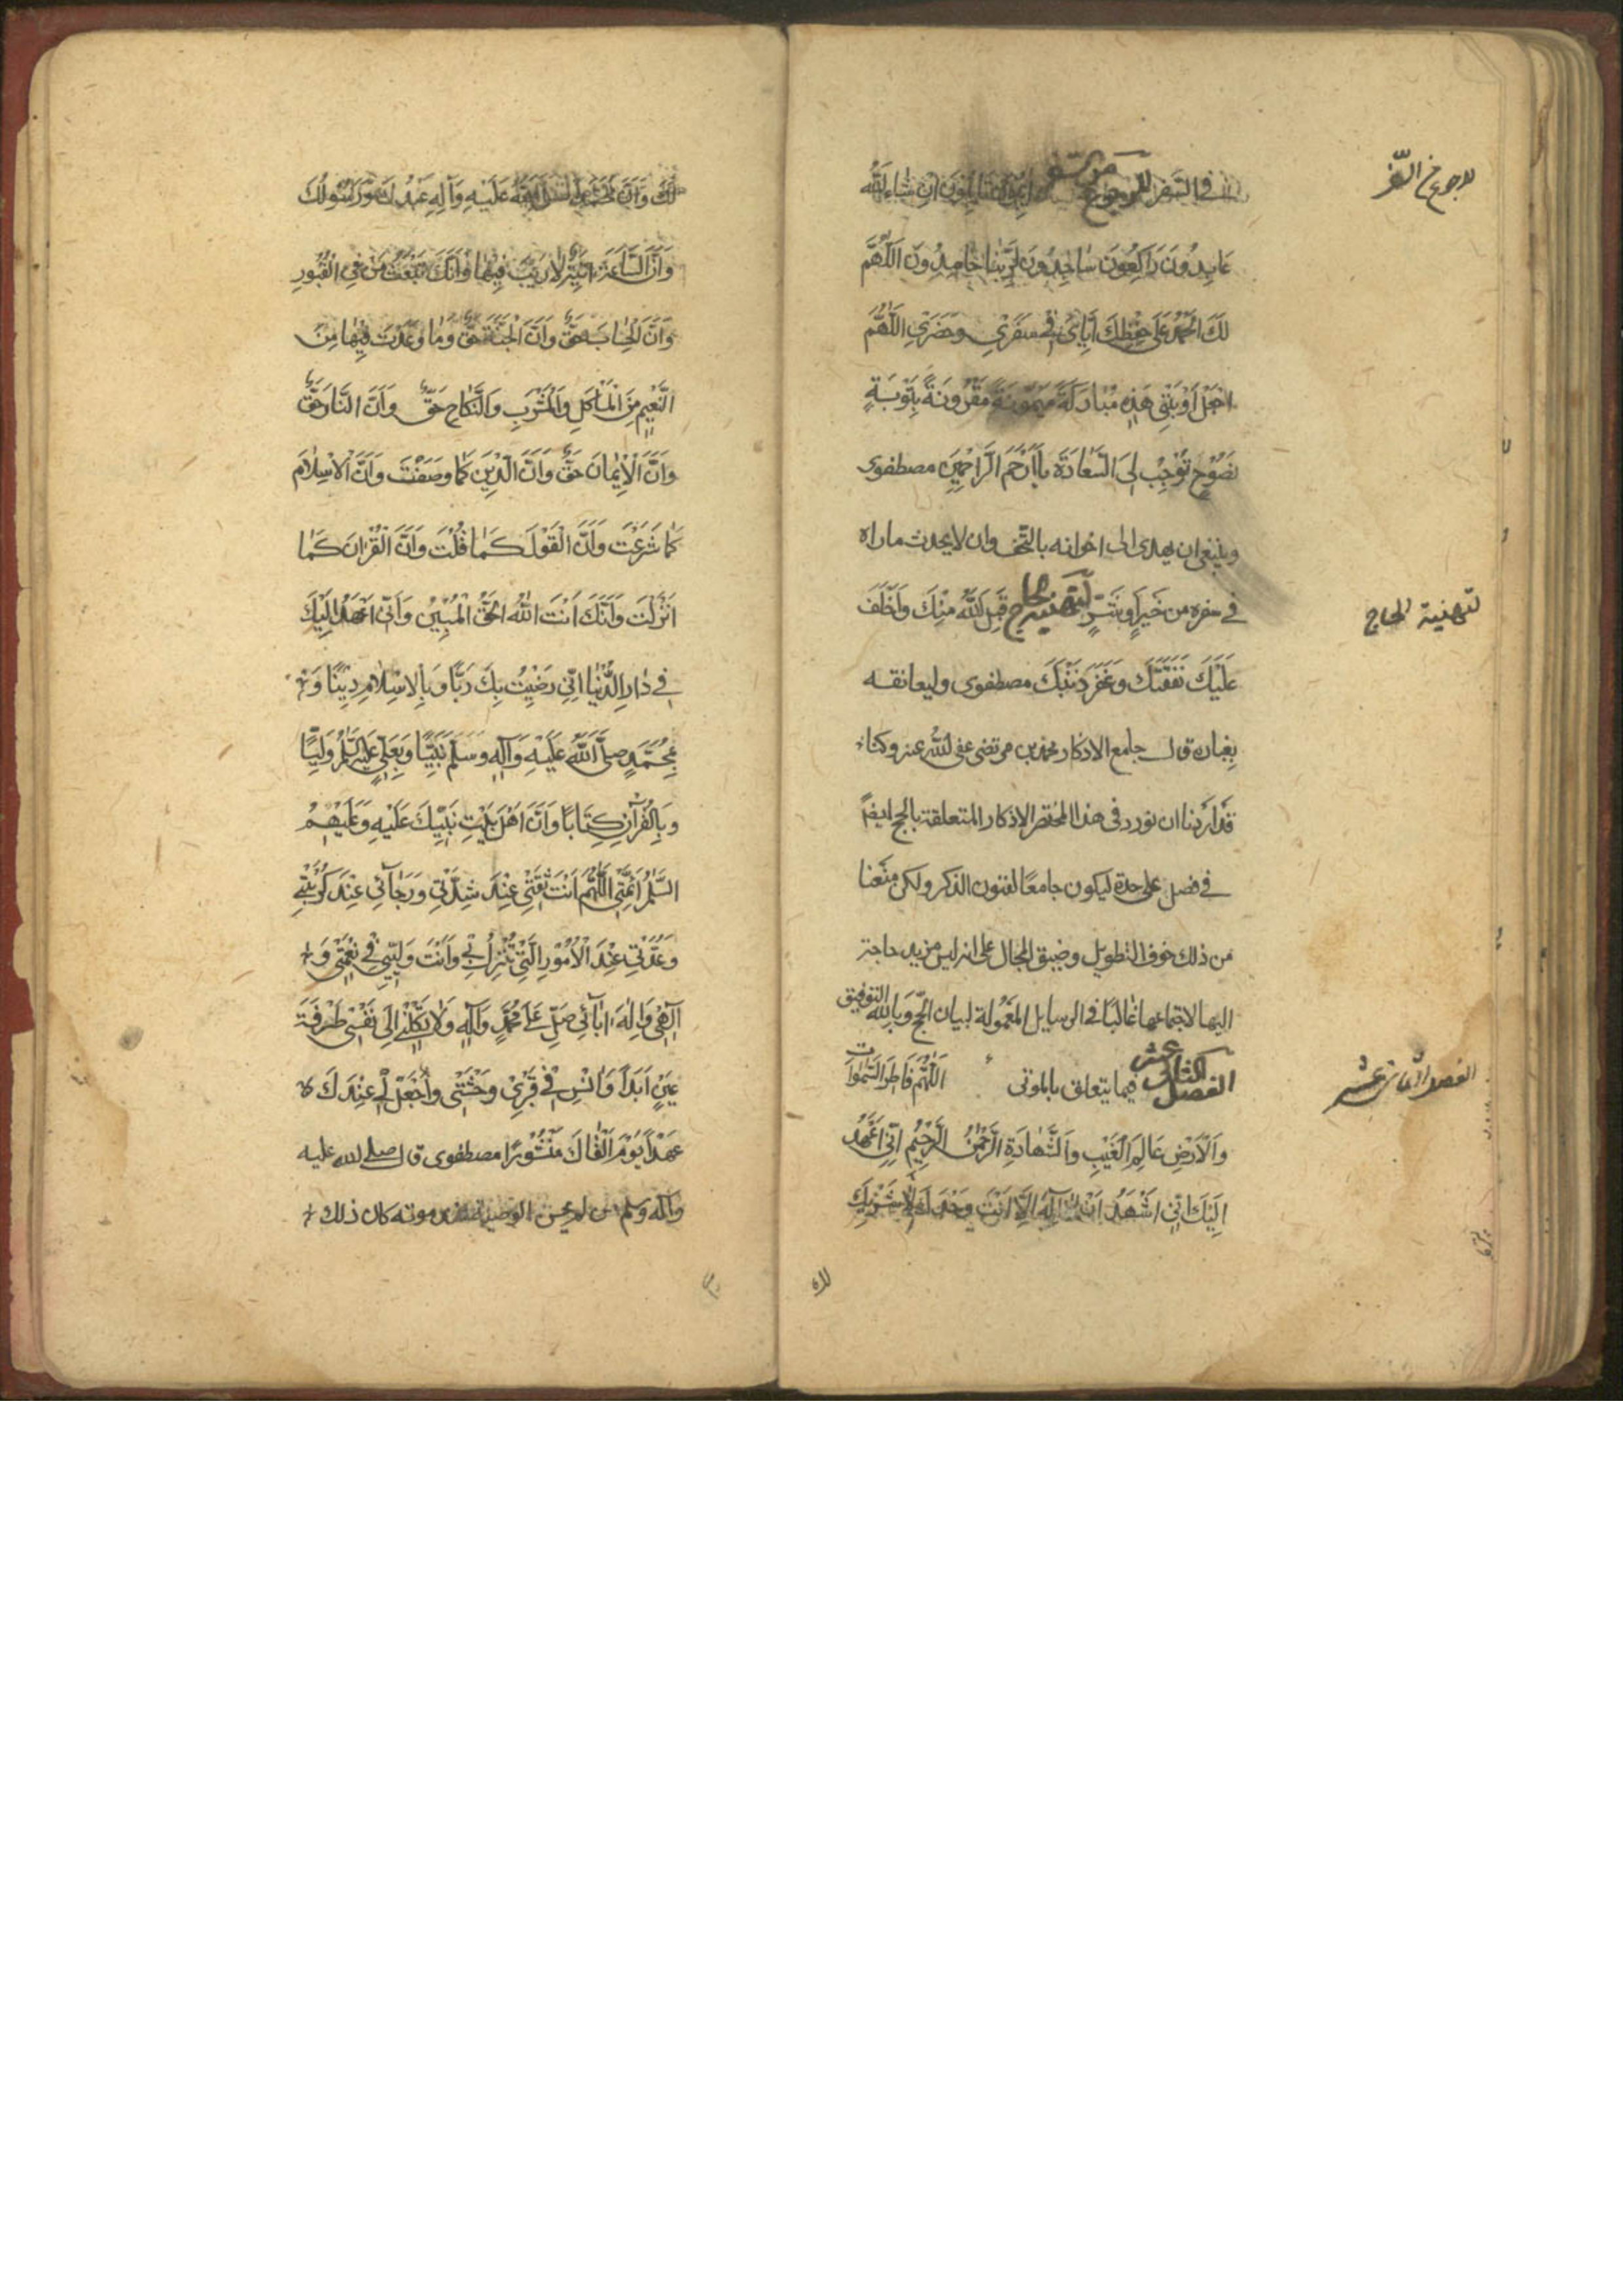 في السفر للرجوع من السفر آئبون تائبون ان شاء الله
للرجوع من السفر
عَابِدُونَ رَاكِعُونَ سَاجِدُونَ لِرَبِّنَا حَامِدُونَ اَللّٰهُمَّ
لَكَ الْحَمْدُ عَلَى حِفْظِكَ اِيَّايَ فِي سَفَرِي وَحَضَرِي اَللّٰهُمَّ
اجْعَلْ اَوْبَتِي هَذِهِ مُبَارَكَةً مَيْمُونَةً مَقْرُونَةً بِتَوْبَةٍ
نَصُوحٍ تُوجِبُ لِيَ السَّعَادَةَ يَا اَرْحَمَ الرَّاحِمِينَ مصطفوى
وينبغى ان يهدى الى اخوانه بالتحف وان لا يحدث ما راه
في سفره من خَيْرٍ اَو شَرٍّ لتهنية الحاج قَبِلَ اللّٰهُ مِنْكَ وَاَخْلَفَ
لتهنية الحاج
عَلَيْكَ نَفَقَتَكَ وَغَفَرَ ذَنْبَكَ مصطفوى وليعانقه
بغباره قال جامع الاذكار محمد بن مرتضى عفى الله عنه وكنا
قد اردنا ان نورد فى هذا المختصر الاذكار المتعلقة بالحج ايضاً
في فصل على حدة ليكون جامعًا لفنون الذكر ولكن منعنا
من ذلك خوف التطويل وضيق المجال على انه ليس مزيد حاجة
اليها لاجتماعها غالبًا في الرسايل المعمولة لبيان الحج وبالله التوفيق
الفصل الثانى عشر فيما يتعلق بالموتى اَللّٰهُمَّ فَاطِرَ السَّمٰوَاتِ
الفصل الثانى عشر
وَالْاَرْضِ عَالِمَ الْغَيْبِ وَالشَّهَادَةِ الرَّحْمٰنُ الرَّحِيمُ اِنِّي اَعْهَدُ
اِلَيْكَ اَنِّي اَشْهَدُ اَنْ لَا اِلٰهَ اِلَّا اَنْتَ وَحْدَكَ لَا شَرِيكَ
لَكَ وَاَنَّ مُحَمَّدًا صَلَّى اللّٰهُ عَلَيْهِ وَآلِهِ عَبْدُكَ وَرَسُولُكَ
وَاَنَّ السَّاعَةَ اٰتِيَةٌ لَا رَيْبَ فِيهَا وَاَنَّكَ تَبْعَثُ مَنْ فِي الْقُبُورِ
وَاَنَّ الْحِسَابَ حَقٌّ وَاَنَّ الْجَنَّةَ حَقٌّ وَمَا وَعَدْتَ فِيهَا مِنَ
النَّعِيمِ مِنَ الْمَاْكَلِ وَالْمَشْرَبِ وَالنِّكَاحِ حَقٌّ وَاَنَّ النَّارَ حَقٌّ
وَاَنَّ الْاِيمَانَ حَقٌّ وَاَنَّ الدِّينَ كَمَا وَصَفْتَ وَاَنَّ الْاِسْلَامَ
كَمَا شَرَعْتَ وَاَنَّ الْقَوْلَ كَمَا قُلْتَ وَاَنَّ الْقُرْاٰنَ كَمَا
اَنْزَلْتَ وَاَنَّكَ اَنْتَ اللّٰهُ الْحَقُّ الْمُبِينُ وَاَنِّي اَعْهَدُ اِلَيْكَ
فِي دَارِ الدُّنْيَا اِنِّي رَضِيتُ بِكَ رَبًّا وَبِالْاِسْلَامِ دِينًا وَ
بِمُحَمَّدٍ صَلَّى اللّٰهُ عَلَيْهِ وَآلِهِ وَسَلَّمَ نَبِيًّا وَبِعَلِيٍّ عَلَيْهِ السَّلَامُ وَلِيًّا
وَبِالْقُرْآنِ كِتَابًا وَاَنَّ اَهْلَ بَيْتِ نَبِيِّكَ عَلَيْهِ وَعَلَيْهِمُ
السَّلَامُ اَئِمَّتِي اَللّٰهُمَّ اَنْتَ ثِقَتِي عِنْدَ شِدَّتِي وَرَجَائِي عِنْدَ كُرْبَتِي
وَعُدَّتِي عِنْدَ الْاُمُورِ الَّتِي تَنْزِلُ بِي وَاَنْتَ وَلِيِّي فِي نِعْمَتِي وَ
اِلٰهِي وَاِلٰهَ اٰبَائِي صَلِّ عَلَى مُحَمَّدٍ وَآلِهِ وَلَا تَكِلْنِي اِلَى نَفْسِي طَرْفَةَ
عَيْنٍ اَبَدًا وَاٰنِسْ فِي قَبْرِي وَحْشَتِي وَاجْعَلْ لِي عِنْدَكَ
عَهْدًا يَوْمَ اَلْقَاكَ مَنْشُورًا مصطفوى قال صلى الله عليه
وآله وسلم من لم يحسن الوصية عند موته كان ذلك